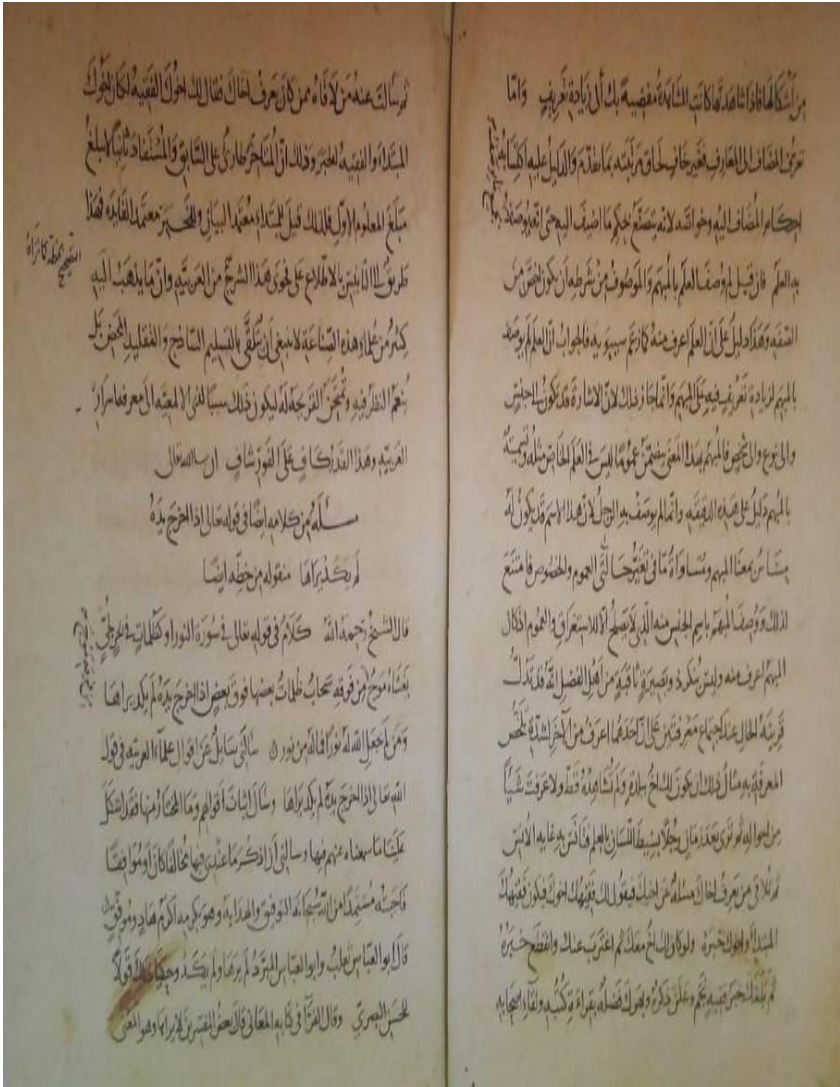 من أشكالها فإذا شاهدتها كانت المشاهدة مفضية بك إلى زيادة تعريف وأما
تعرف المضاف إلى المعارف فغير خاف لحاق مرتبته بما تقدم والدليل عليه اكتسابه
أحكام المضاف إليه وخواصه لأنه يتصنع بحكم ما أضيف إليه حتى إنه يوصف
به العلم فإن قيل لم وصف العلم بالمبهم والموصوف من شرطه أن يكون أخص من
الصفة وهذا دليل على أن العلم أعرف منه كما زعم سيبويه فالجواب أن العلم لم يوصف
بالمبهم لزيادة تعريف فيه على المبهم وإنما جاز ذلك لأن الإشارة قد تكون إلى جنس
وإلى نوع وإلى شخص فالمبهم بهذا المعنى يتضمن عموما ليس في العلم الخاص مثله وتسميته
بالمبهم دليل على هذه الدقيقة وإنما لم يوصف به الرجل لأن هذا الاسم قد يكون له
معنا المبهم ومساواة ما في العموم والخصوص فامتنع
لذلك ووصف المبهم باسم الجنس منه الذي لا يصلح إلا للاستغراق والعموم إذ كان
المبهم أعرف منه وليس بمنكر ذو بصيرة ثاقبة من أهل الفضل أنه قد تدل
قرينة الحال عند اجتماع معرفتين على أن أحدهما أعرف من الآخر لشدة تخصص
المعرفة به مثال ذلك أن يكون لك أخ ببلدة ولم تشاهده قط ولا عرفت شيئا
من أحواله ثم ترى بعد زمان رجلا بسيط اللسان بالعلم فتأنس به غاية الأنس
ثم تلاقي من يعرف أخاك مسئلة عن أخيك فيقول لك فقيهك أخوك فيكون فقيهك
المبتدأ وأخوك خبره ولو كان الأخ معك ثم اغترب عنك وانقطع خبره
ثم بلغك خبر فقيه نجم وعلن ذكره ولهوك فضله بقراءة كتبه ولقاء أصحابه
ثم سألت عنه من لاقاه ممن كان يعرف أخاك فقال لك أخوك الفقيه لكان أخوك
المبتداء والفقيه الخبر وذلك أن المتأخر طارئ على السابق والمستفاد ثانيا لا يبلغ
مبلغ المعلوم الأول فلذلك قيل للمبتداء معتمد البيان وللخبر معتمد الفائدة فهذا
طريق بالاطلاع على نحوى هذا الشرج من العربية وأن ما يذهب إليه
كثير من علماء هذه الصناعة لا ينبغي أن يتلقى بالتسليم الساذج والتقليد المحض بل
ينعم النظر فيه وتمتحن القريحة له ليكون ذلك سببا للمعية إلى معرفة أسرار
العربية وهذا القدر كاف على الفور شاف إن شاء الله تعالى
مسئلة من كلامه أيضا في قوله تعالى إذا أخرج يده
لم يكد يراها منقوله من خطه أيضا
قال الشيخ رحمه الله كلام في قوله تعالى في سورة النور أو كظلمات في بحر لجي
يغشاه موج من فوقه سحاب ظلمات بعضها فوق بعض إذا أخرج يده لم يكد يراها
ومن لم يجعل الله له نورا فماله من نور سألني سائل عن أقوال علماء العربية في قول
الله تعالى إذا أخرج يده لم يكد يراها وسأل إثبات أقوالهم وما المختار منها فقد أشكل
علينا ما سمعناه عنهم فيها وسألني أن أذكر ما عندي فيها مخالفا كان أو موافقا
فأجبته مستمدا من الله سبحانه التوفيق والهداية وهو بكرمه أكرم هاد وموفق
قال أبو العباس ثعلب وأبو العباس المبرد لم يرها ولم يكد وحكيا ذلك قولا
للحسن البصري وقال الفراء في كتابه المعاني قال بعض المفسرين لا يراها وهو المعنى